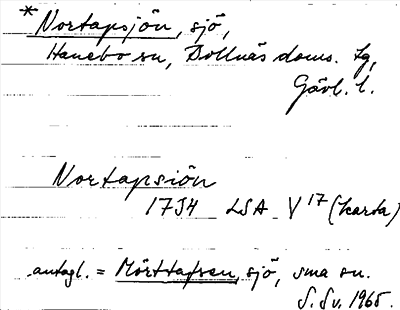 * Nortapsjön, sjö,
Hanebo sn, Bollnäs doms. tg,
Gävl. l.
Nortapsiön
1734 LSA V 17 (karta)
antagl. = Mörttapsen, sjö, sma sn.
S. Sv. 1965.